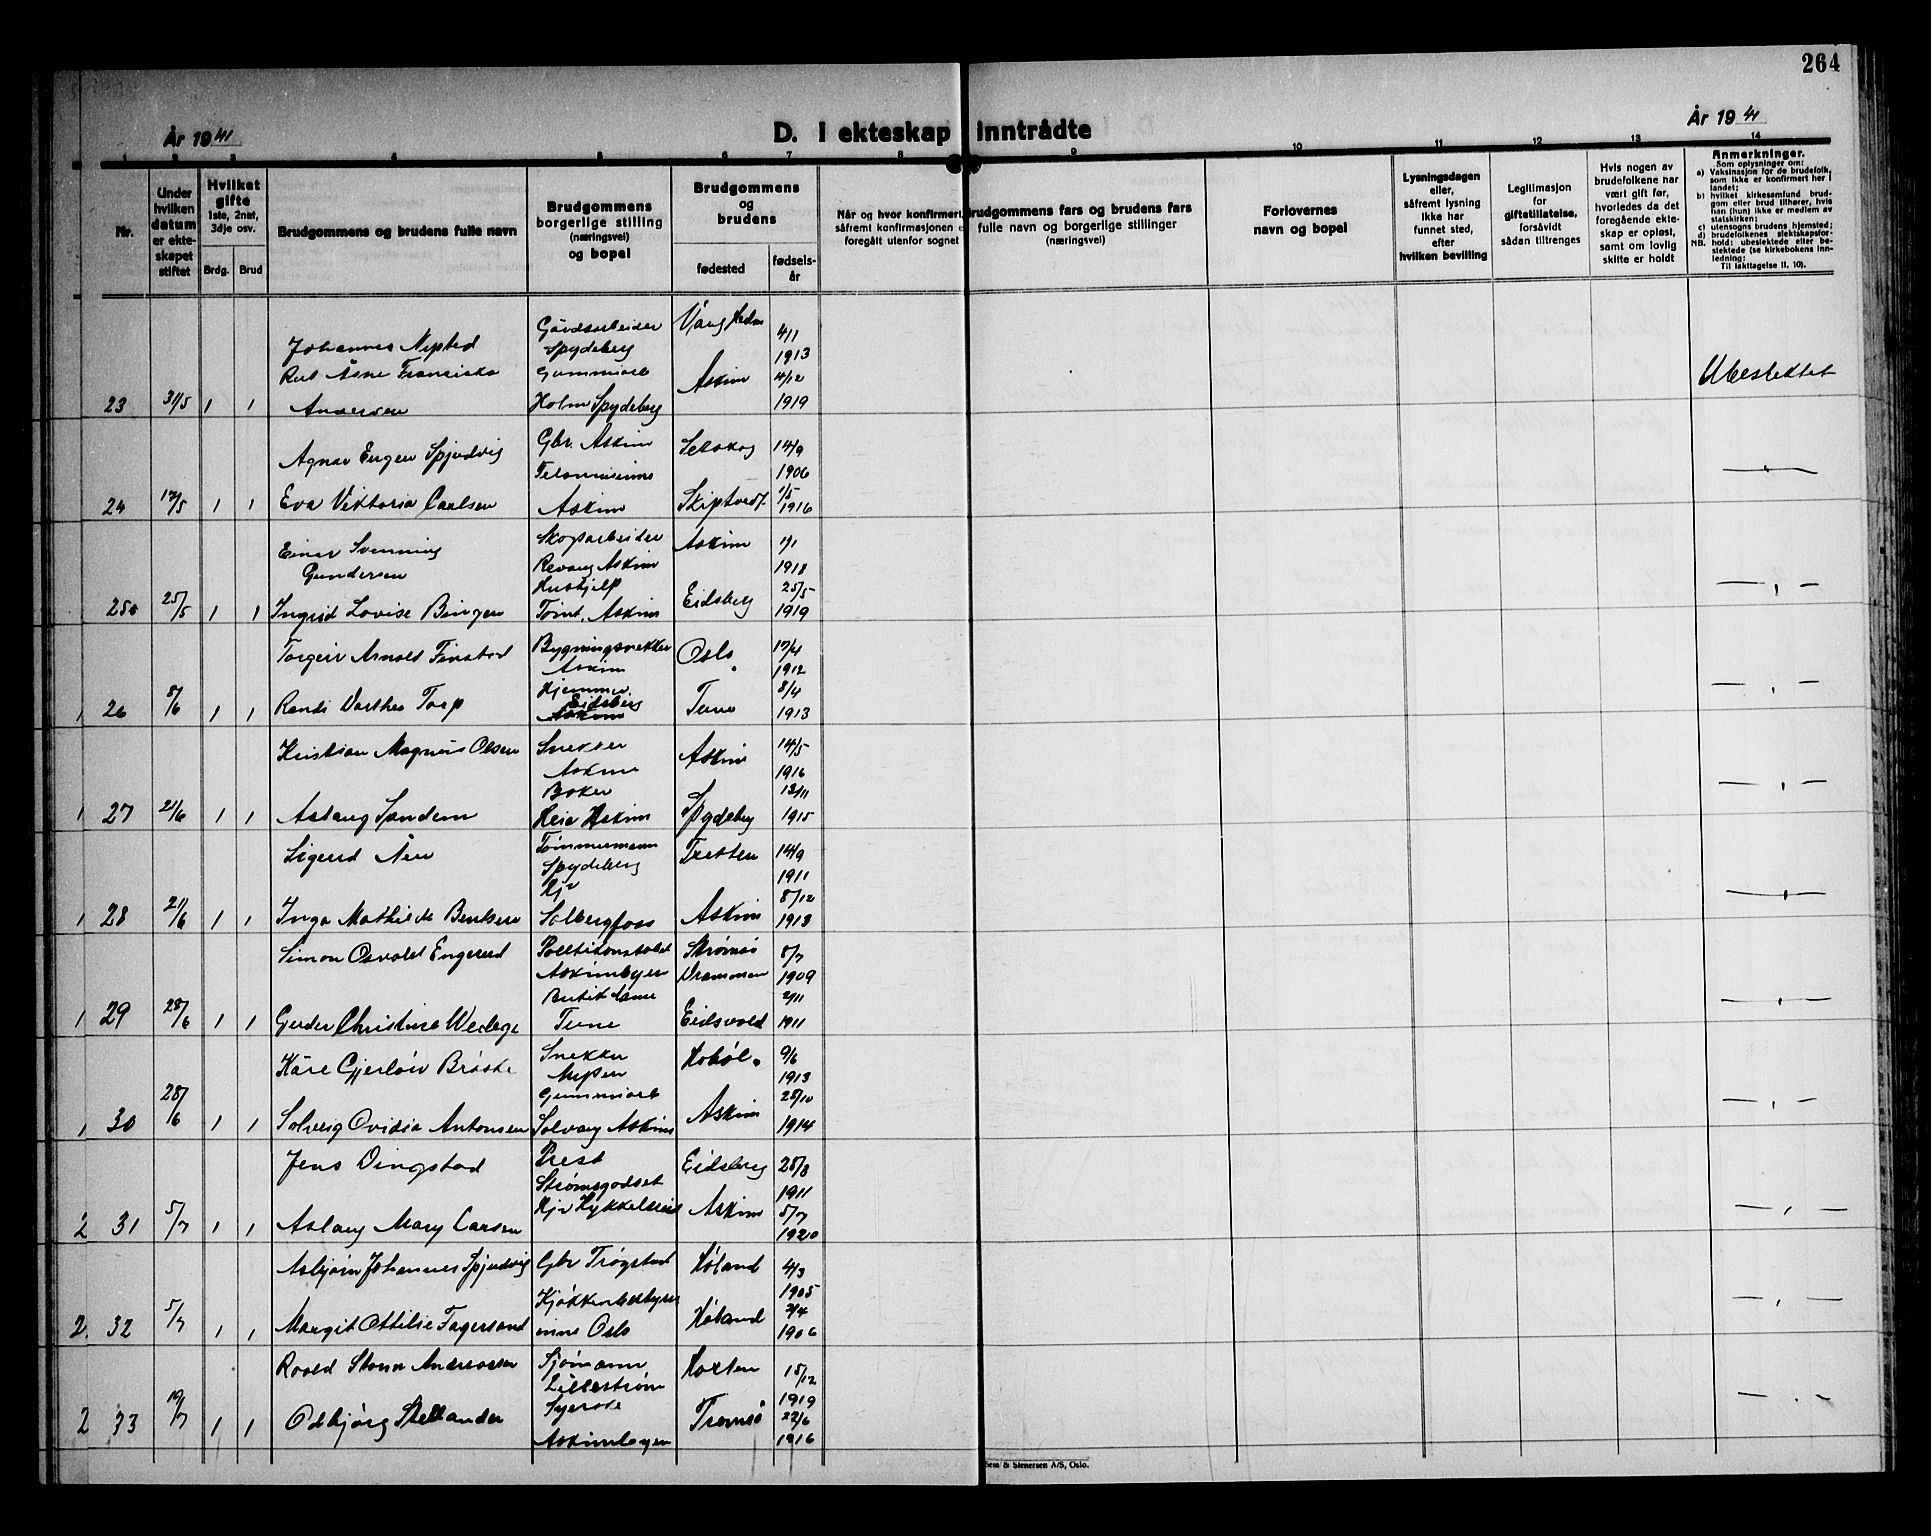 264
År 1941
D. I ekteskap inntrådte
År 1941
1 2 3 4 5 6 7 8 9 10 11 12 13 14
Nr.
Under hvilken datum er ekteskapet stiftet
Hvilket gifte 1ste, 2net, 3dje osv.
Brdg. Brud
Brudgommens og brudens fulle navn
Brudgommens borgerlige stilling (næringsvei) og bopel
Brudgommens og brudens
fødested
fødselsår
Når og hvor konfirmert, såfremt konfirmasjonen er foregålt utenfor sognet
Brudgommens fars og brudens fars fulle navn og borgerlige stillinger (næringsvei)
Forlovernes navn og bopel
Lysningsdagen eller, såfremt lysning ikke har funnet sted, efter hvilken bevilling
Legitimasjon for giftetillatelse, forsåvidt sådan tiltrenges
Hvis nogen av brudefolkene har vært gift før, hvorledes da det foregående ekteskap er opløst, samt om lovlig skifte er holdt
Anmerkninger.
Som oplysninger om:
a) Vaksinasjon for de brudefolk, som ikke er konfirmert her i landet;
b) hvilket kirkesamfund brudgom eller brud tilhører, hvis han (hun) ikke er medlem av statskirken;
c) utensogns brudens hjemsted;
d) brudefolkenes slektskapsforhold: ubeslektede eller beslektede (se kirkebokens innledning;
NB.
Til iakttagelse II. 10).
Johannes Nysted Gårdsarbeider Spydeberg Vang Hedm 4/1 1913
23 31/5 1 1 Rut Åsne Franciska Andersen Gummiarb Holm Spydeberg Askim 4/12 1919 Ubeslektet
Agnar Engen Spjudvig Gbr. Askim Setskog 14/9 1906
24 17/5 1 1 Eva Viktoria Carlsen Askim Skiptvedt 1/5 1916
Einar Svenning Gundersen Skogsarbeider Revaug Askim Askim 1/1 1918
25 25/5 1 1 Ingrid Lovise Bingen Hushjelp Askim Eidsberg 25/5 1919
Torgeir Arnold Finstad Bygningssnekker Askim Oslo 17/4 1912
1 26 8/6 1 1 Randi Dorthea Torp Hjemme Eidsberg Tune 8/4 1913
Kristian Magnus Olsen Snekker Askim Askim 14/5 1916
1 27 21/6 1 1 Aslaug Sandem Heia Askim Spydeberg 13/11 1915
Sigurd Åen Tømmermann Spydeberg Tretten 14/9 1911
1 28 21/6 1 1 Inga Mathilde Bentsen Hjv Solbergfoss Askim 8/12 1913
Simon Osvald Engerud Politikonstabel Askimbyen Strømsø Drammen 8/7 1909
1 29 28/6 1 1 Gerda Christine Wedege Butikdame Tune Eidsvold 2/11 1911
Kåre Gjerløv Snekker Mysen Hobøl 9/6 1913
1 30 28/6 1 1 Solveig Ovidia Antonsen Gummiarb Solvang Askim Askim 28/10 1914
Jens Dingstad Prest Strømsgodset Eidsberg 28/8 1911
2 31 5/7 1 1 Aslaug Mary Larsen Hjv Kykkelsrud Askim 5/7 1920
Asbjørn Johannes Spjudvig Gbr Trøgstad Høland 4/3 1905
2. 32 5/7 1 1 Margit Ottilie Fagersand Kjøkkenbestyrerinne Oslo Høland 2/4 1906
Roald Storm Andreassen Sjømann Lillestrøm Horten 15/12 1919
2 33 19/7 1 1 Odbjørg Stellander Syerske Askimbyen Tromsø 22/6 1916
Sem & Stenersen A/S, Oslo.